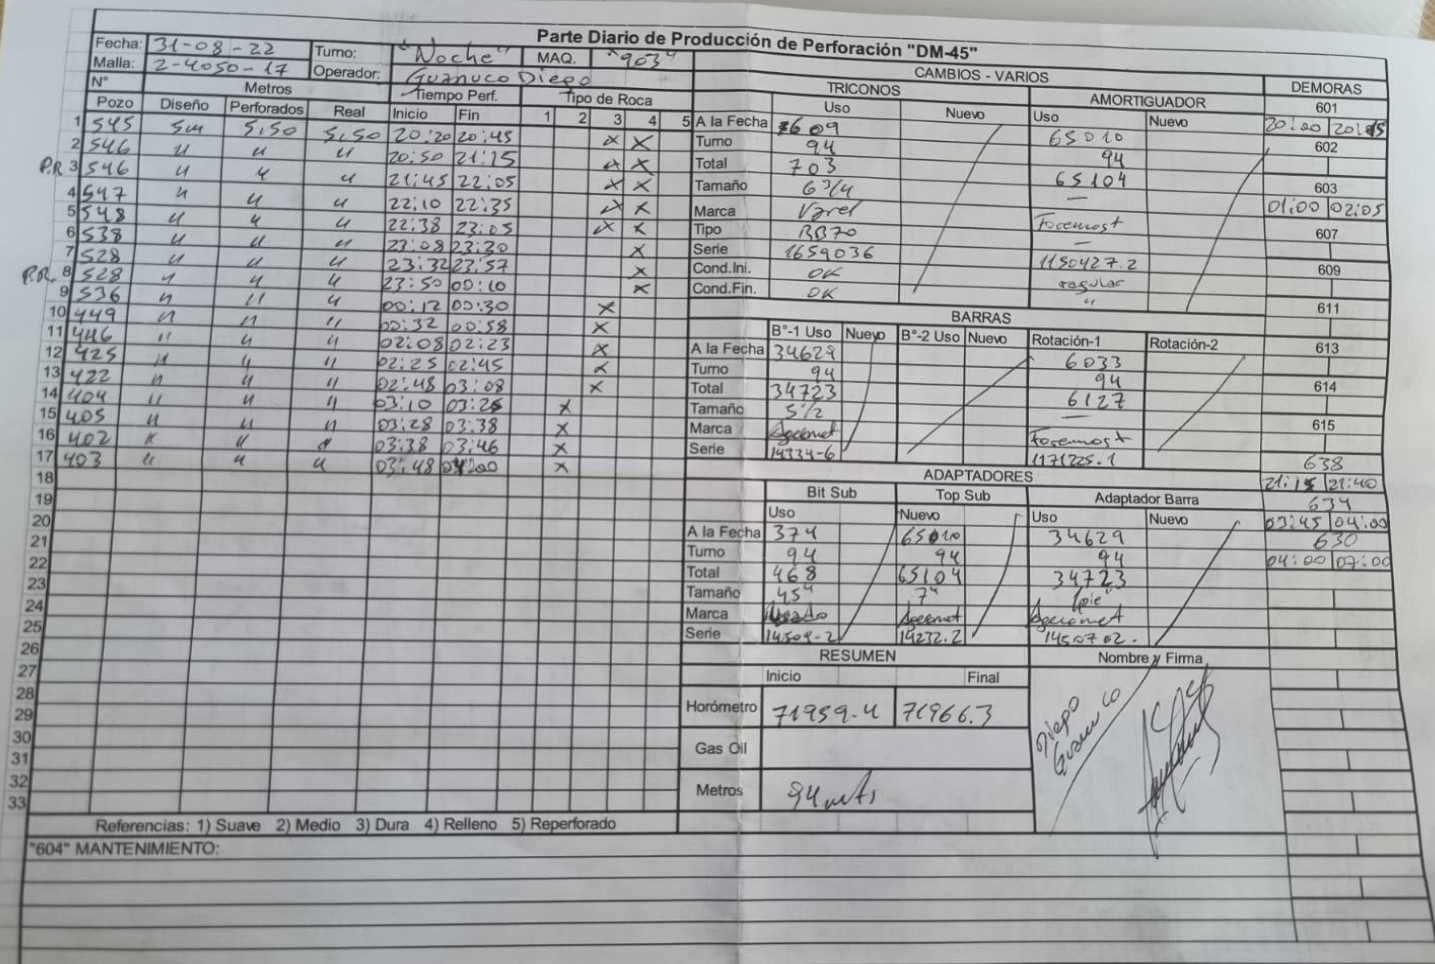 Parte Diario de Producción de Perforación "DM-45"
Fecha: 31-08-22 Turno: "Noche" MAQ. "903"
Malla: 2-4050-17 Operador: Guanuco Diego
N° Metros Tiempo Perf. Tipo de Roca
Pozo Diseño Perforados Real Inicio Fin 1 2 3 4 5
1 545 5m 5,50 5,50 20:20 20:45 x x
2 546 " " " 20:50 21:15 x x
P.R 3 546 " " " 21:45 22:05 x x
4 547 " " " 22:10 22:35 x x
5 548 " " " 22:38 23:05 x x
6 538 " " " 23:08 23:30 x
7 528 " " " 23:32 23:57 x
P.R. 8 528 " " " 23:50 00:10 x
9 536 " " " 00:12 00:30 x
10 449 " " " 00:32 00:58 x
11 446 " " " 02:08 02:23 x
12 425 " " " 02:25 02:45 x
13 422 " " " 02:48 03:08 x
14 404 " " " 03:10 03:25 x
15 405 " " " 03:28 03:38 x
16 402 " " " 03:38 03:46 x
17 403 " " " 03:48 04:00 x
18
19
20
21
22
23
24
25
26
27
28
29
30
31
32
33
Referencias: 1) Suave 2) Medio 3) Dura 4) Relleno 5) Reperforado
"604" MANTENIMIENTO:
CAMBIOS - VARIOS
TRICONOS AMORTIGUADOR
Uso Nuevo Uso Nuevo
A la Fecha 609 65010
Turno 94 94
Total 703 65104
Tamaño 6 3/4 —
Marca Varel Foremost
Tipo RB70 —
Serie 1659036 1150427.2
Cond.Ini. OK regular
Cond.Fin. OK "
BARRAS
B°-1 Uso Nuevo B°-2 Uso Nuevo Rotación-1 Rotación-2
A la Fecha 34629 6033
Turno 94 94
Total 34723 6127
Tamaño 5 1/2 —
Marca Foremost
Serie 14334-6 1171225.1
ADAPTADORES
Bit Sub Top Sub Adaptador Barra
Uso Nuevo Uso Nuevo
A la Fecha 374 65010 34629
Turno 94 94 94
Total 468 65104 34723
Tamaño 45" 7"
Marca
Serie 14509-2 14232.2 1450702.
RESUMEN
Inicio Final
Horómetro 71959.4 71966.3
Gas Oil
Metros 94 mts
Nombre y Firma
Diego Guanuco
DEMORAS
601
20:00 20:15
602
603
01:00 02:05
607
609
611
613
614
615
638
21:15 21:40
634
03:45 04:00
630
04:00 07:00